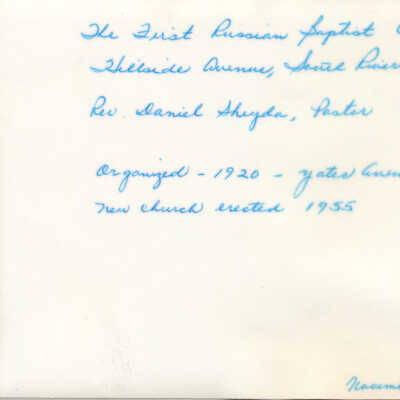 The First Russian Baptist C
Hillside Avenue, South River
Rev. Daniel Sheyda, Pastor
Organized - 1920 - Yates Aven
New church erected 1955
Novem